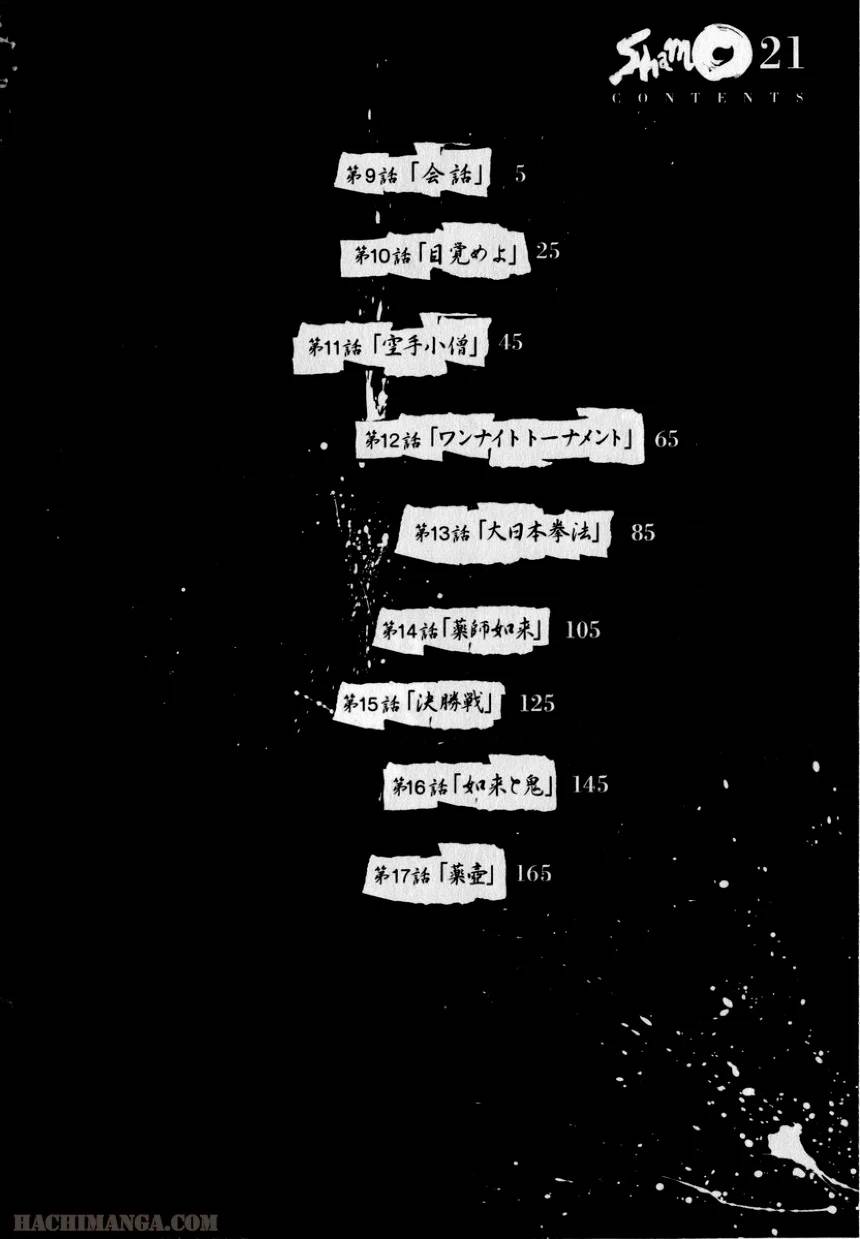 Shamo 21
CONTENTS
第9話「会話」 5
第10話「目覚めよ」 25
第11話「空手小僧」 45
第12話「ワンナイトトーナメント」 65
第13話「大日本拳法」 85
第14話「薬師如来」 105
第15話「決勝戦」 125
第16話「如来と鬼」 145
第17話「薬壺」 165
HACHIMANGA.COM